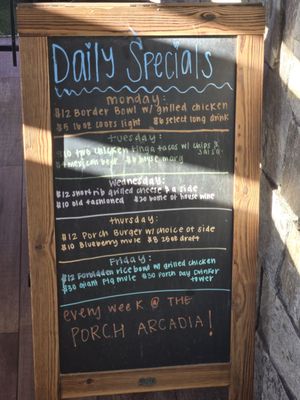 Daily Specials
monday:
$12 Border Bowl w/ grilled chicken
$5 16 oz coors light $6 select long drink
Tuesday:
$10 two chicken tinga tacos w/ chips & salsa
$ mexican beer $6 house marg
Wednesday:
$12 short rib grilled cheese & a side
$10 old fashioned $20 bottle of house wine
Thursday:
$12 Porch Burger w/ choice of side
$10 Blueberry mule $8 25oz draft
Friday:
$12 Forbidden rice bowl w/ grilled chicken
$30 giant pig mule $30 Porch Day Drinker tower
every week @ THE
PORCH ARCADIA!